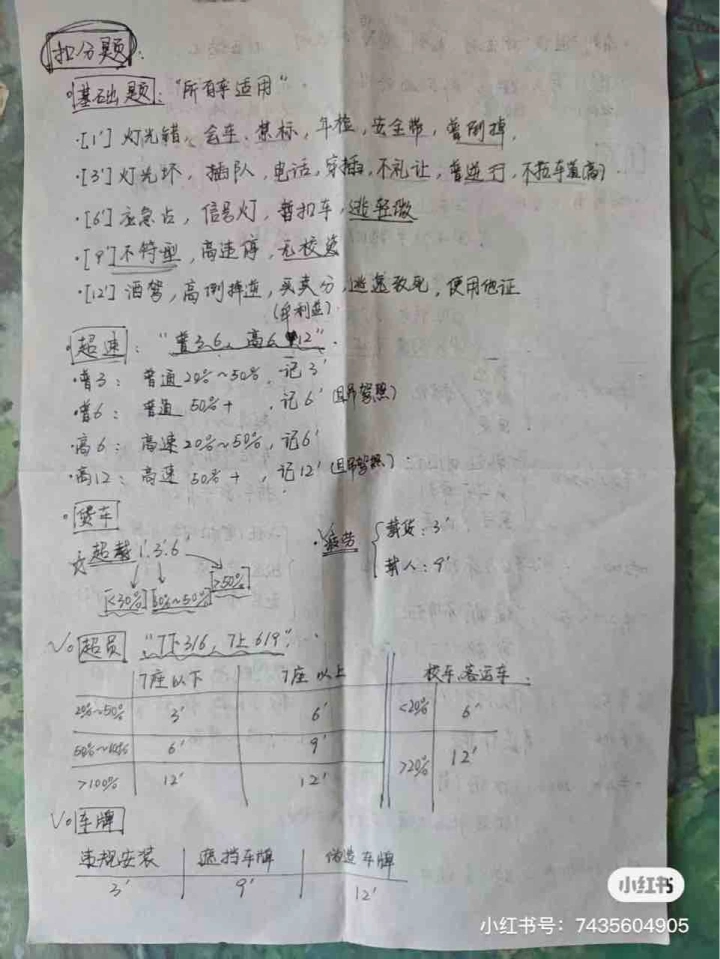 扣分题:
基础题: "所有车适用"
·[1'] 灯光错、会车、禁标, 年检, 安全带, 普倒掉,
·[3'] 灯光坏, 插队, 电话, 穿插, 不礼让, 普逆行, 不按车道(高)
·[6'] 应急占, 信号灯, 暂扣车, 逃轻微
·[9'] 不符型, 高速停, 无校资
·[12'] 酒驾, 高倒掉逆, 买卖分, 逃逸致死, 使用他证
(牟利益)
超速: "普3.6, 高6 12"
·普3: 普通20%~50%, 记3'
·普6: 普通 50%+ , 记6' (且吊驾照)
·高6: 高速20%~50%, 记6'
·高12: 高速 50%+ , 记12' (且吊驾照)
·货车
超载 1.3.6
<30% 30%~50% >50%
·疲劳
载货: 3'
载人: 9'
超员 "7下316, 7上619"
7座以下 7座以上 校车,客运车
20%~50% 3' 6' <20% 6'
50%~100% 6' 9' >20% 12'
>100% 12' 12'
车牌
违规安装 遮挡车牌 伪造车牌
3' 9' 12'
小红书
小红书号: 7435604905